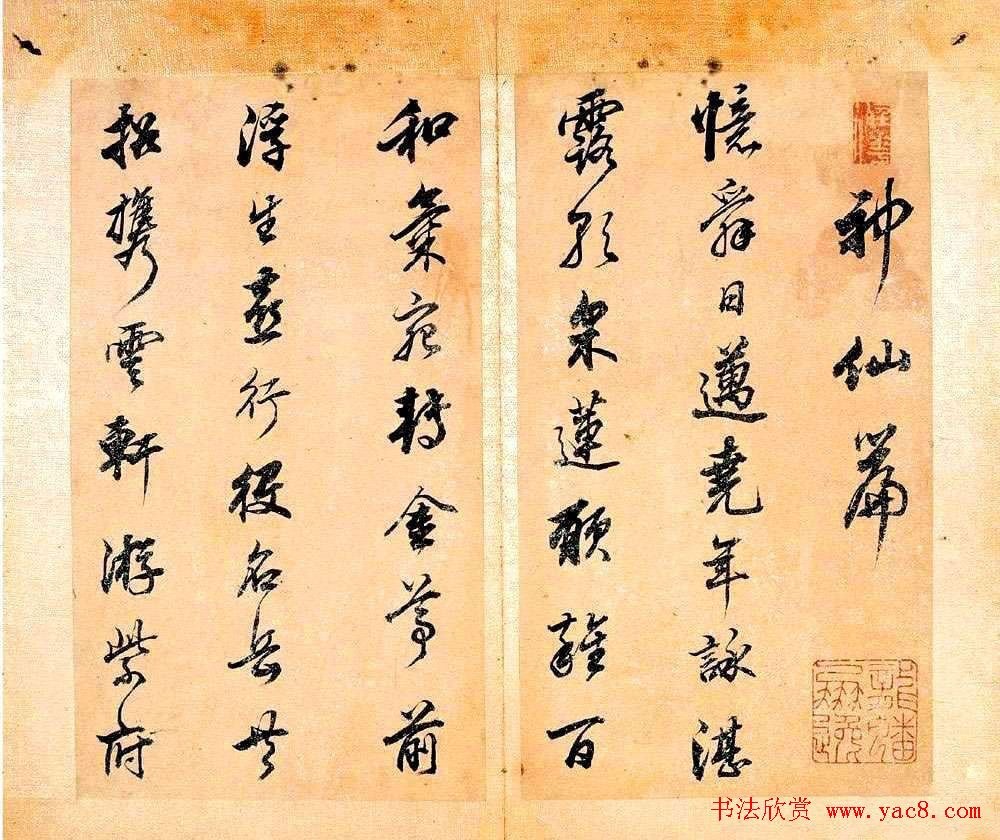 神仙篇
憶舜日邁堯年詠湛
露歌采蓮願雜百
和氣宛轉金尊前
浮生盡行役名岳共
招攜雲軒游紫府
书法欣赏 www.yac8.com